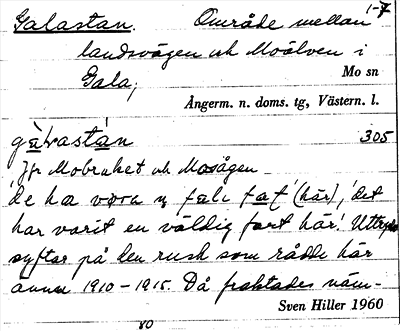 Galastan. Område mellan 1-7
landsvägen och Moälven i
Gala,
Mo sn
Ångerm. n. doms. tg, Västern. l.
305
Jfr Mobruket och Mosågen
(här), 'det
har varit en väldig fart här'. Uttrycket
syftar på den rush som rådde här
1910-1915. Då fraktades näm-
Sven Hiller 1960
80